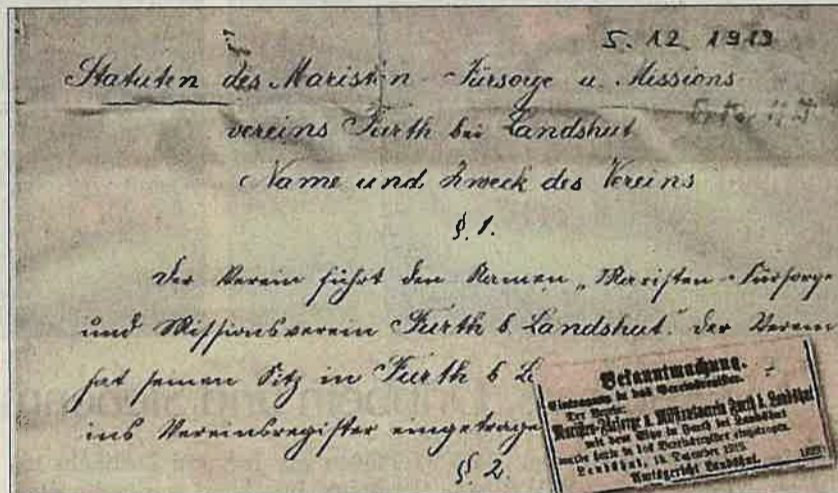 5. 12. 1919
Statuten des Maristen-Fürsorge u. Missions
vereins Furth bei Landshut
Name und Zweck des Vereins
§. 1.
Der Verein führt den Namen „Maristen-Fürsorge
und Missionsverein Furth b. Landshut." Der Verein
hat seinen Sitz in Furth b. L
ins Vereinsregister eingetrage
§. 2.
Bekanntmachung.
Eintragung in das Vereinsregister.
Der Verein:
Maristen-Fürsorge u. Missionsverein Furth b. Landshut
mit dem Sitz in Furth bei Landshut
wurde heute in das Vereinsregister eingetragen.
Landshut, Dezember 1919.
Amtsgericht Landshut.